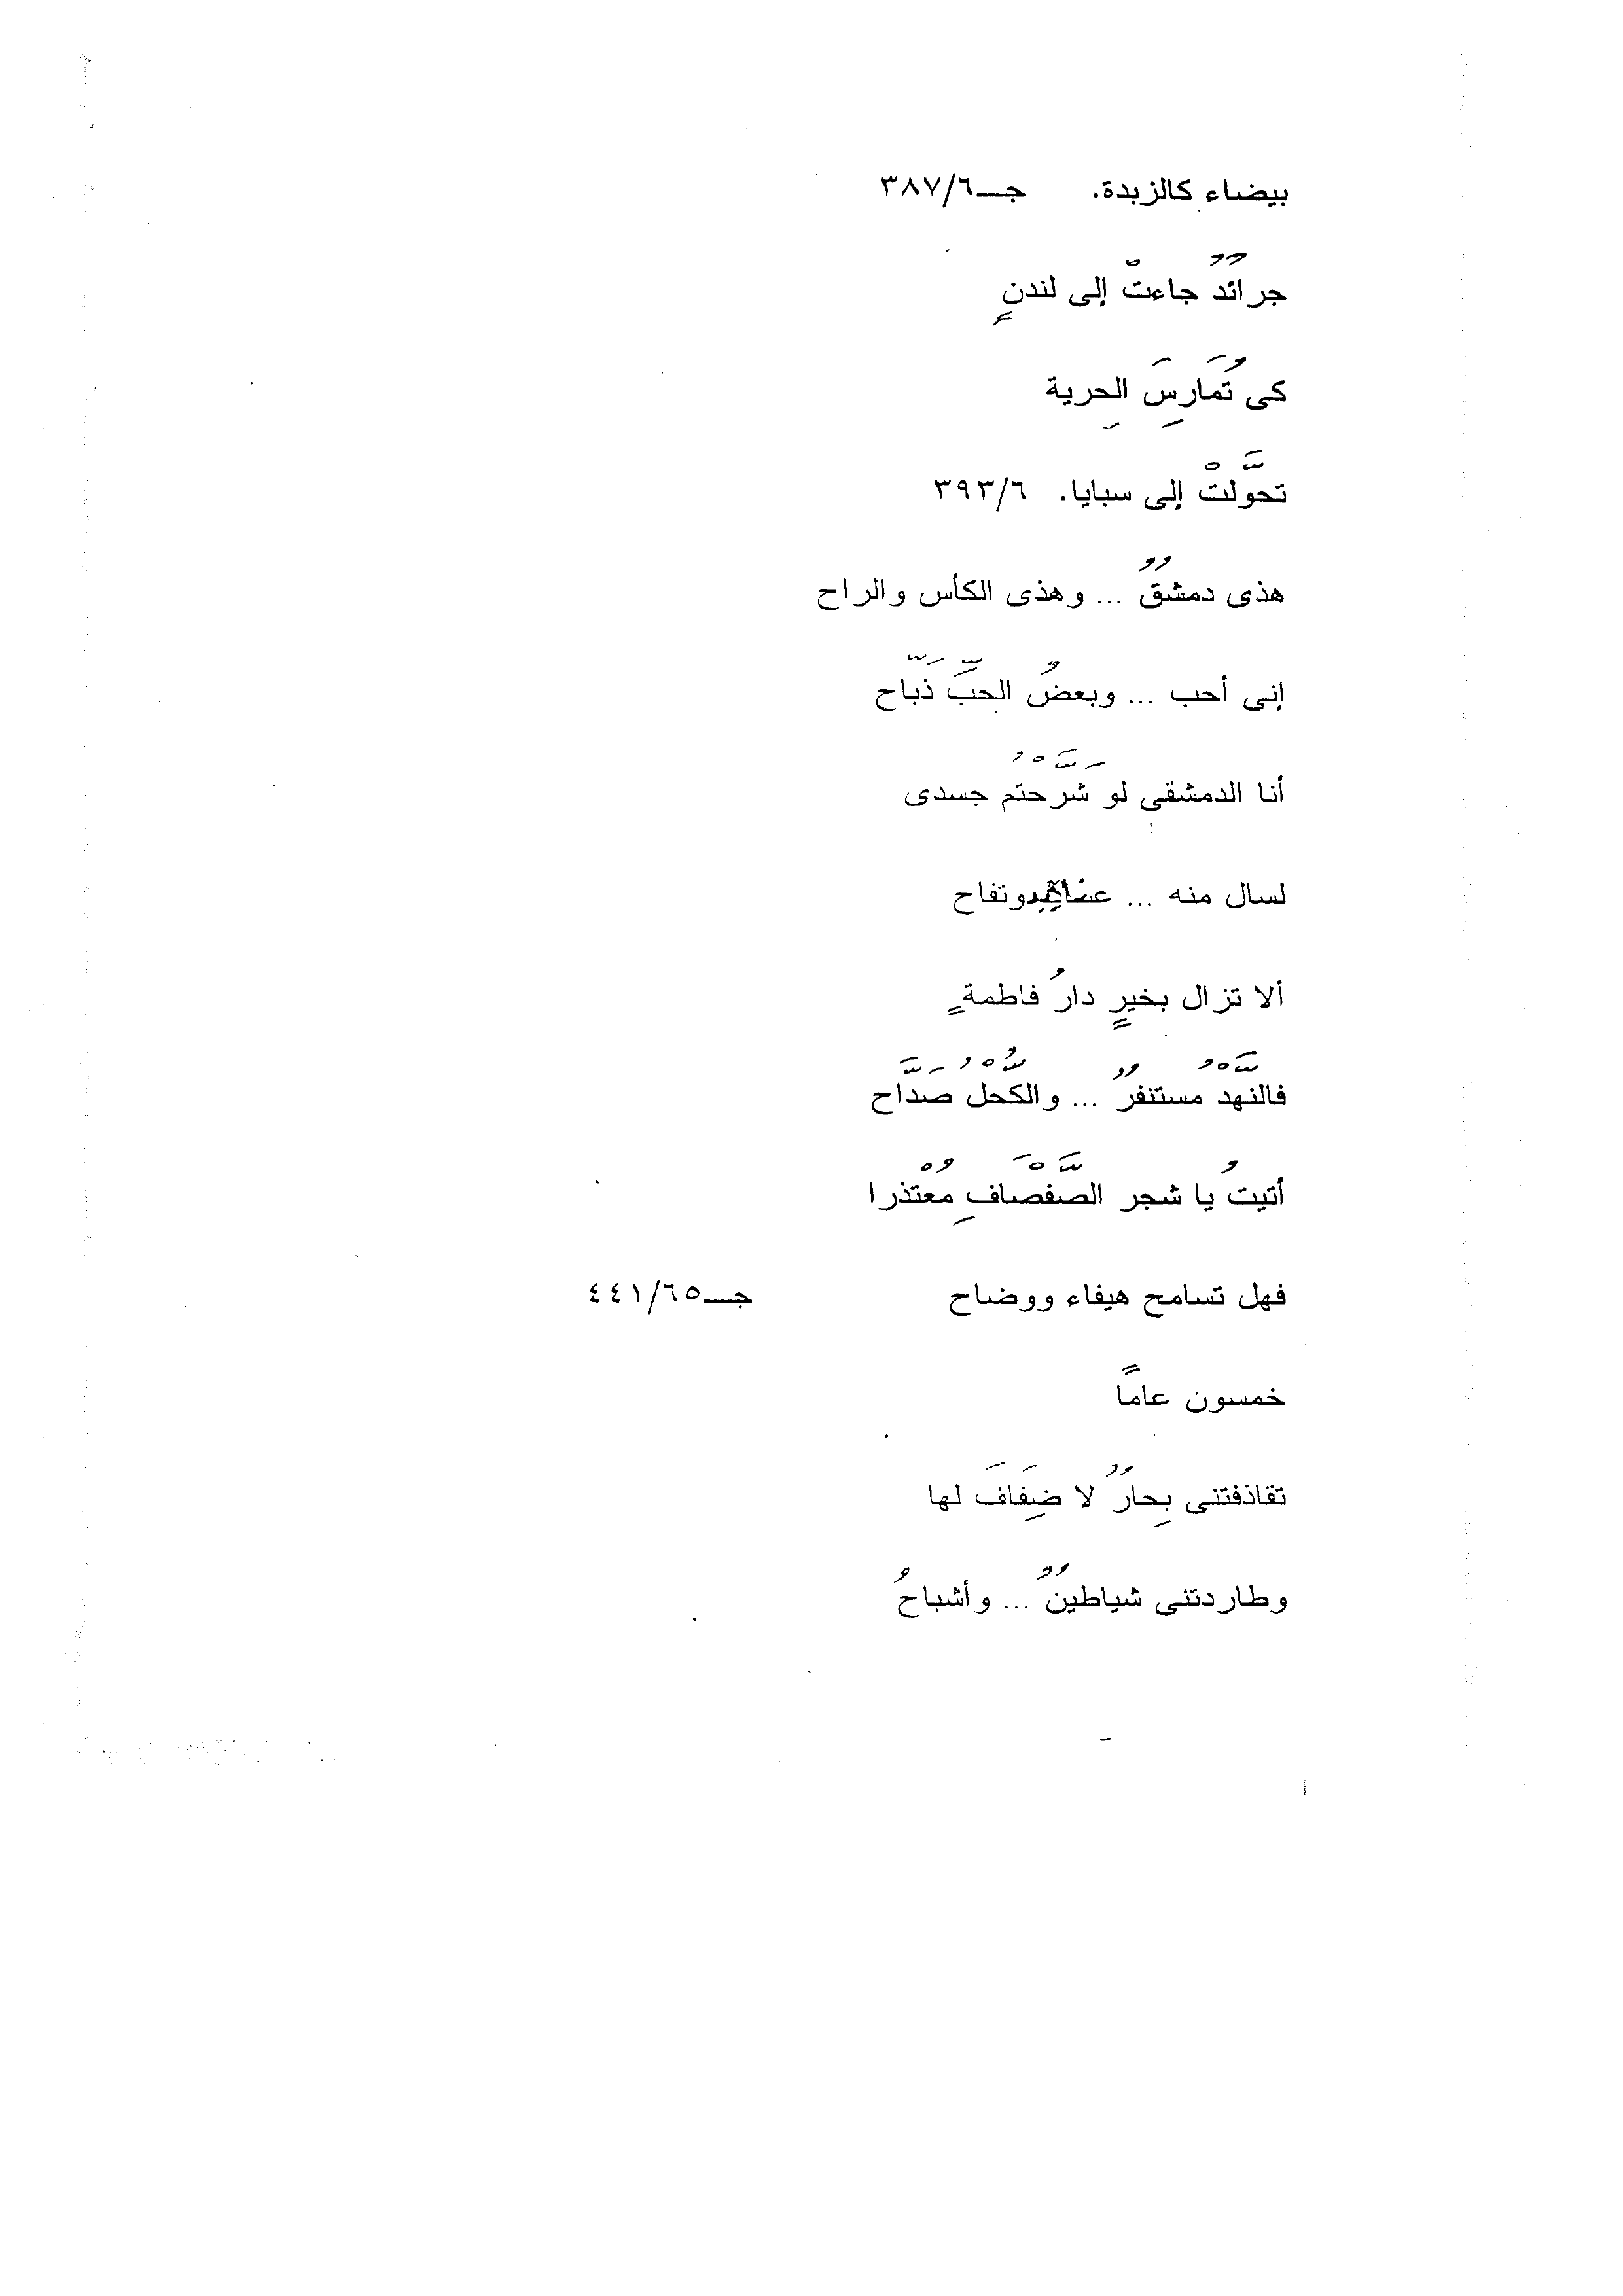 بيضاء كالزبدة. جـ٣٨٧/٦
جرائدٌ جاءتْ إلى لندنٍ
كى تُمَارِسَ الحرية
تحوَّلتْ إلى سبايا. ٣٩٣/٦
هذى دمشقٌ ... وهذى الكأس والراح
إنى أحب ... وبعضُ الحبِّ ذَبّاح
أنا الدمشقى لو شَرَّحْتُم جسدى
لسال منه ... عناقيد وتفاح
ألا تزال بخيرٍ دارُ فاطمةٍ
فالنَّهْدُ مستنفرٌ ... والكُّحْلُ صَدَّاح
أتيتُ يا شجر الصَّفْصَافِ مُعْتذرا
فهل تسامح هيفاء ووضاح جـ٤٤١/٦٥
خمسون عامًا
تقاذفتنى بِحارٌ لا ضِفَافَ لها
وطاردتنى شياطينٌ ... وأشباحُ